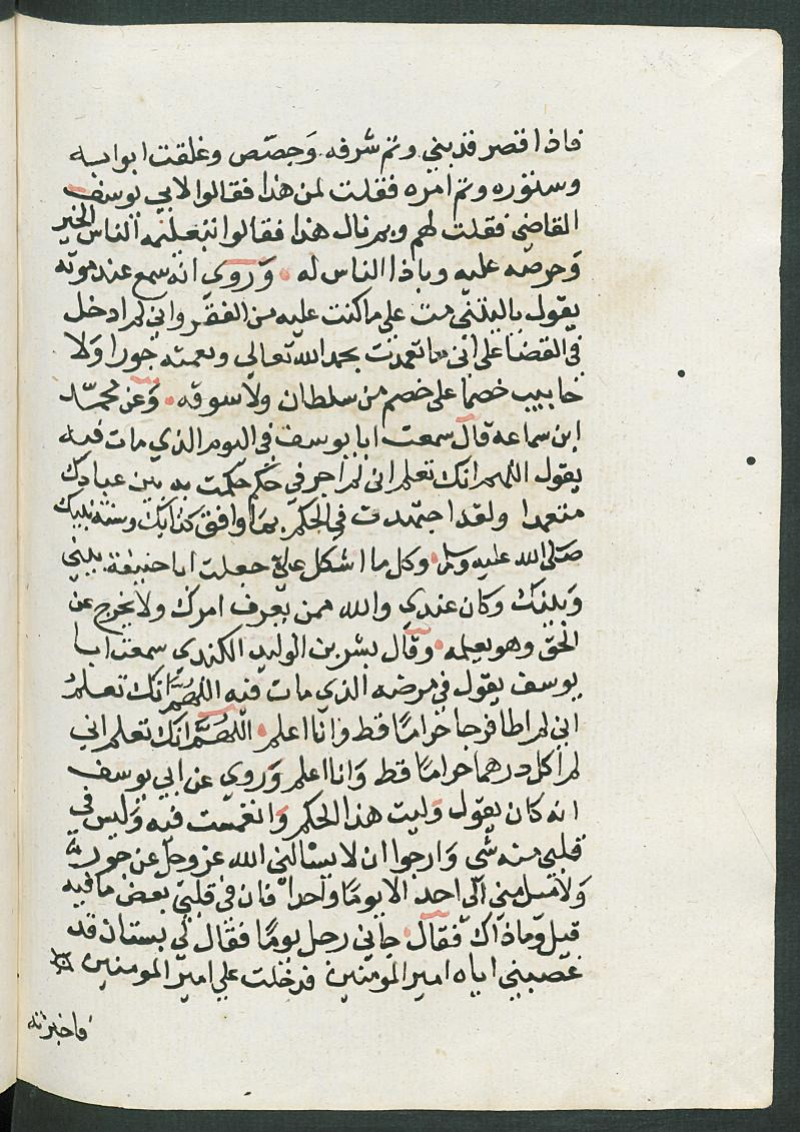 فاذا قصر قد بني وتم شرفه وجصص وغلقت ابوابه
وستوره وتم امره فقلت لمن هذا فقالوا لابي يوسف
القاضي فقلت لهم وبم نال هذا فقالوا بتعليمه الناس الخير
وحرصه عليه وباذا الناس له وروي انه سمع عند موته
يقول ياليتني مت على ما كنت عليه من الفقر واني لم ادخل
في القضا على اني ما تعمدت بحمد الله تعالي ونعمته جورا ولا
حابيت خصما على خصم من سلطان ولا سوقه وعن محمد
ابن سماعه قال سمعت ابا يوسف في اليوم الذي مات فيه
يقول اللهم انك تعلم اني لم اجر في حكم حكمت به بين عبادك
متعمدا ولقد اجتهدت في الحكم بما وافق كتابك وسنة نبيك
صلى الله عليه وسلم وكل ما اشكل علي جعلت ابا حنيفة بيني
وبينك وكان عندي والله ممن يعرف امرك ولا يخرج عن
الحق وهو يعلمه وقال بشر بن الوليد الكندي سمعت ابا
يوسف يقول في مرضه الذي مات فيه اللهم انك تعلم
اني لم اطا فرجا حراما قط وانا اعلم اللهم انك تعلم اني
لم اكل درهما حراما قط وانا اعلم وروي عن ابي يوسف
انه كان يقول وليت هذا الحكم وانغمست فيه وليس في
قلبي منه شي وارجوا ان لا يسالني الله عز وجل عن جور
ولا ميل مني الى احد الا يوما واحدا فان في قلبي بعض ما فيه
قيل وما ذاك فقال جاني رجل يوما فقال لي بستان قد
غصبني اياه امير المومنين فدخلت علي امير المومنين
فاخبرته